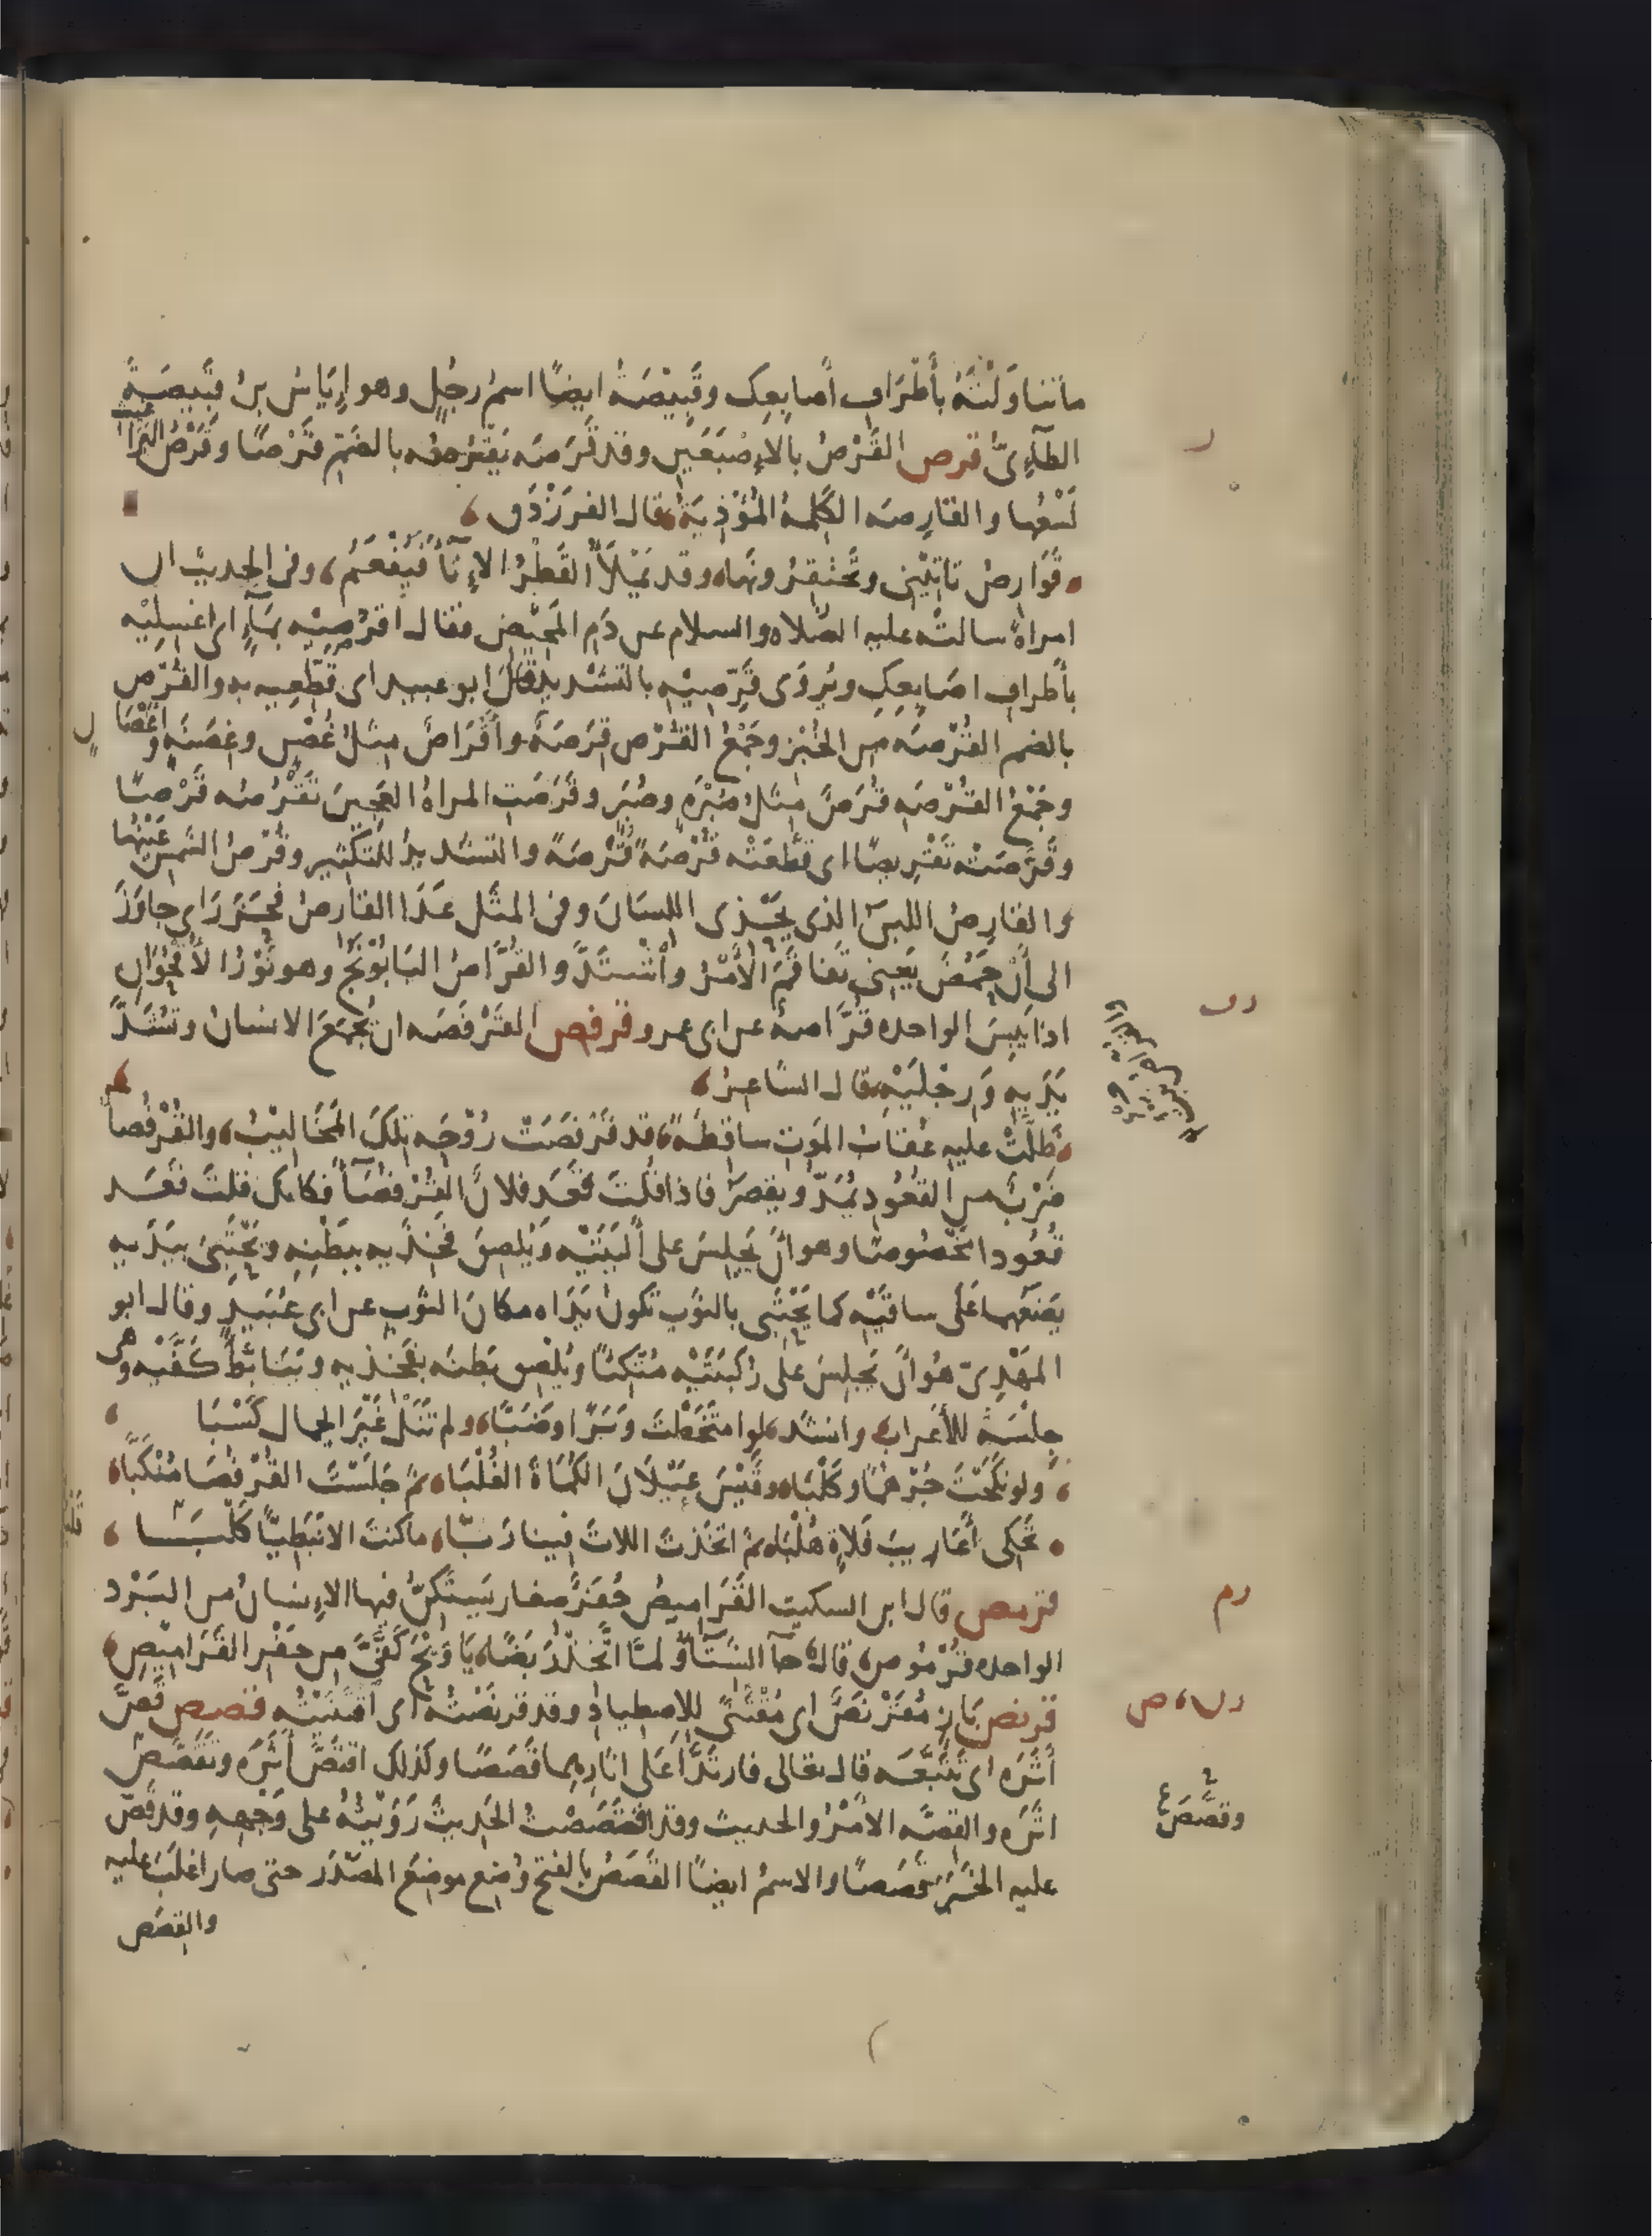 ما تناوَلْتَهُ بأَطْرَافِ أَصابِعِك وقَبِيْصَةُ ايضًا اسمُ رجُلٍ وهو إِيَاسُ بنُ قَبِيصَةَ
الطآءِىُّ قرص القَرْصُ بالاِصْبَعَيْنِ وقد قَرَصَه يَقْرُصُه بالضَمّ قَرْصًا وقَرْصُ البَرَاغيث
لَسْعُها والقارِصَه الكَلِمةُ المُؤْذِيَةُ قال الفرَزْدَق
قَوَارِصُ تَاتِيْنِى وتَحْتَقِرُونَها وقد يَمْلَأُ القَطْرُ الإِنَآءَ فَيَفْعَمُ، وفى الحديث ان
امراةً سالتْه عليه الصّلاه والسلام عن دَمِ المَحِيْضِ فقال اقرُصِيْه بمَآءٍ اى اغسِلِيْه
بأطرافِ اصَابِعِكِ ويُروَى قَرِّصِيْهِ بالتشْديد قَالَ ابو عبيد اى قَطِّعِيه به والقُرْص
بالضم القُرْصَه من الخُبْز وجَمْعُ القُرْص قِرَصَةٌ وأَقْرَاصٌ مِثلُ غُصْنٍ وغِصَنَةٍ وأغْصَانٍ
وجَمْعُ القُرْصَه قُرَصٌ مِثلُ صُبْرَةٍ وصُبَرٍ وقَرَصَتِ المراةُ العَجِينَ تَقْرُصُه قَرْصًا
وقَرَّصَتْه تَقْرِيصًا اى قَطَّعَتْه قُرْصَةً قُرْصَةً والتشْديدُ للتَكْثِيرِ وقُرْصُ الشَمْسِ عَيْنُها
والقارِصُ اللبنُ الذى يَحْذِى اللِسَانَ وفى المثَل عَدَا القارصُ فحَزَرَ اى جاوَزَ
الى أَنْ حَمُضَ يَعنِى تَفَاقَمَ الأَمْرُ وأشْتَدَّ والقُرَّاصُ البَابُوْنَجُ وهو نَوْرُ الأُقحُوَانِ
اذا يَبِسَ الواحده قُرَّاصةٌ عن ابى عمرو قرفص القَرْفَصَه ان تَجْمَعَ الانسانَ وتَشُدَّ
يَدَيهِ وَرِجْلَيْهِ قال الشاعرُ
ظَلَّتْ عليه عُقابُ المَوتِ ساقطةً قد قَرْفَصَتْ رُوْحَه تِلكَ المَخَالِيْبُ، والقُرْفُصَاُ
ضَرْبٌ من القُعُودِ يُمَدُّ ويقصَرُ فاذا قلْتَ قَعَد فلانٌ القُرْفُصَآءَ فكانك قلتَ قعَد
قُعُودا مَخْصُوصًا وهو أنْ يَجلِسَ على أَلْيَتَيْه ويُلصِقَ فَخِذَيه ببَطْنِهِ ويَحْتَبِىَ بيَدَيهِ
يَضَعُهما عَلَى ساقَيْه كما يَحْتَبِى بالثوْبِ تكونُ يَدَاه مكانَ الثوْبِ عن ابى عُبَيدٍ وقال ابو
المَهْدِىّ هُوَ أنْ يَجلِسَ على رُكْبَتَيْه مُتَكِئًا ويُلْصِق بَطنَه بفَخِذيه ويَتَأبَّطَ كَفَّيْه وهى
جِلْسَةُ الأعْرابِ وانشد، لوامتَخَطْتَ وَبَرًا وضَبًّا، ولم تَنَلْ غَيْرَ الجمال كَسْبَا
ولو نكَحْتَ جُرْهُمًا وكَلْبَا وقَيْسَ عَيْلَانَ الكُمَاةَ الغُلْبَا، ثم جَلَسْتَ القُرْفُصَا مُنْكَبَّا
تَحْكِى أَعَاريبَ فَلَاةٍ هُلْبَا، ثم اتخذتَ اللاتَ فينا رَبّا، ما كنتَ الا نَبَطِيًّا كَلْبَا
قرمص قال ابن السكيت القَرَامِيصُ حُفَرٌ صِغار يَسْتَكِنُّ فيها الإِنسانُ من البَرْد
الواحده قُرْمُوص، قال جآ الشِتَآءُ ولمّا اتَّخِذْ رَبَضًا، يَا وَيْحَ كَفَّىَّ من حَفْرِ القَرَامِيْصِ
قرنص بَازٍ مُقَرْنَصٌ اى مُقْتَنًى لِلاِصطِيادِ وقد قرنَصْتُه اى اقتَنَيْتُه قصص قَصَّ
أَثَرَه اى تَتَبَّعَه قال تعالى فارتَدَّا عَلَى اثَارِهِما قَصَصًا وكذلك اقتَصَّ أثَرَه وتقَصَّصَ
اثَرَه والقِصَّه الأَمْرُ والحديث وقد اقْتَصَصْتُ الحَدِيثَ رَوَيْتُهُ على وَجْهِهِ وقد قَصَّ
عليه الخَبَرَ قَصَصًا والاسمُ ايضًا القَصَصُ بالفتح وُضِعَ موضِعَ المصْدَر حتى صار اغلبَ عليه
والقِصَص
ر
رف
رم
رں، ص
وقصَّصَ